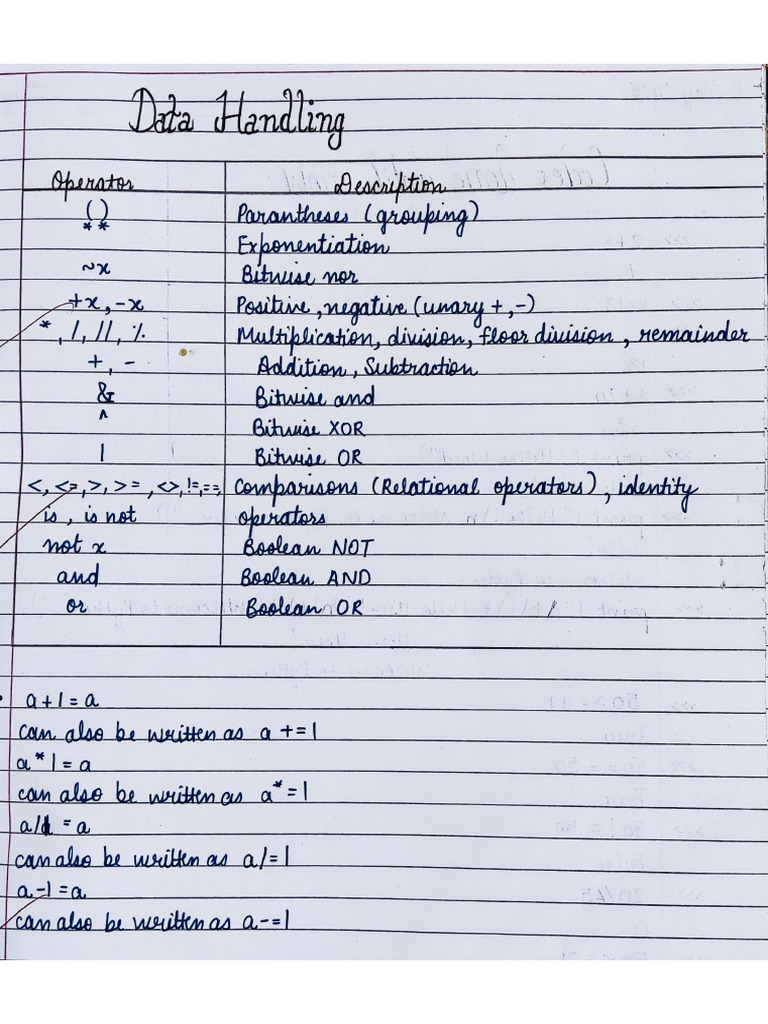 Data Handling
Operator Description
( ) Parantheses (grouping)
** Exponentiation
~x Bitwise nor
+x, -x Positive, negative (unary +, -)
*, /, //, % Multiplication, division, floor division, remainder
+, - Addition, Subtraction
& Bitwise and
^ Bitwise XOR
| Bitwise OR
<, <=, >, >=, <>, !=, ==, Comparisons (Relational operators), identity
is, is not operators
not x Boolean NOT
and Boolean AND
or Boolean OR
a+1=a
can also be written as a+=1
a*1=a
can also be written as a*=1
a/1=a
can also be written as a/=1
a-1=a
can also be written as a-=1